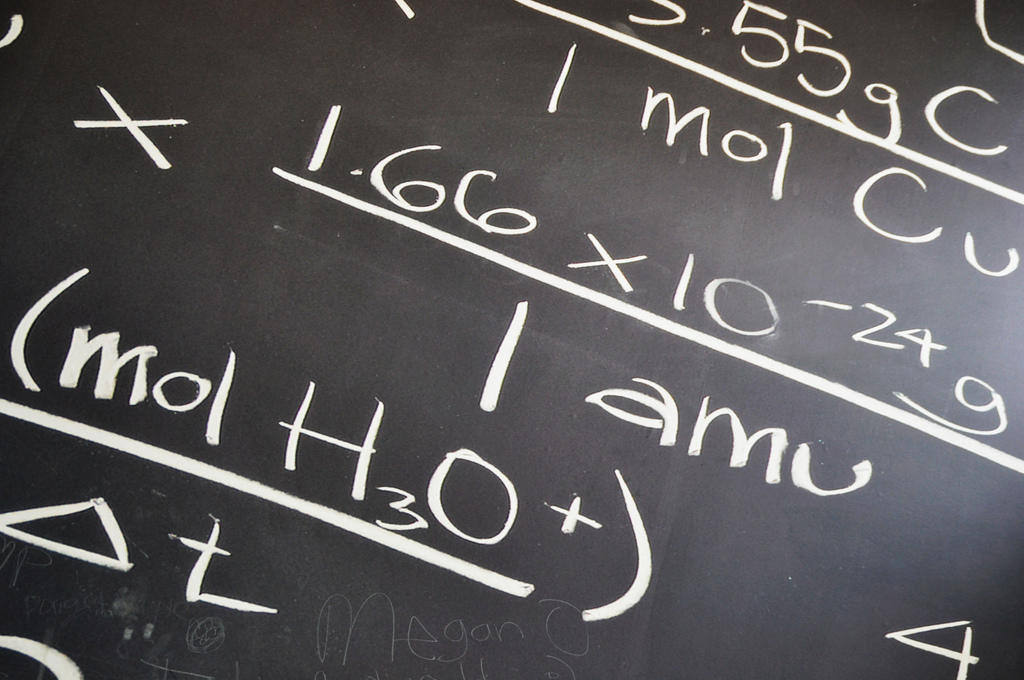 .55g C
1 mol Cu
× 1.66 × 10 -24 g
1 amu
(mol H3O+)
Δt
Megan
4